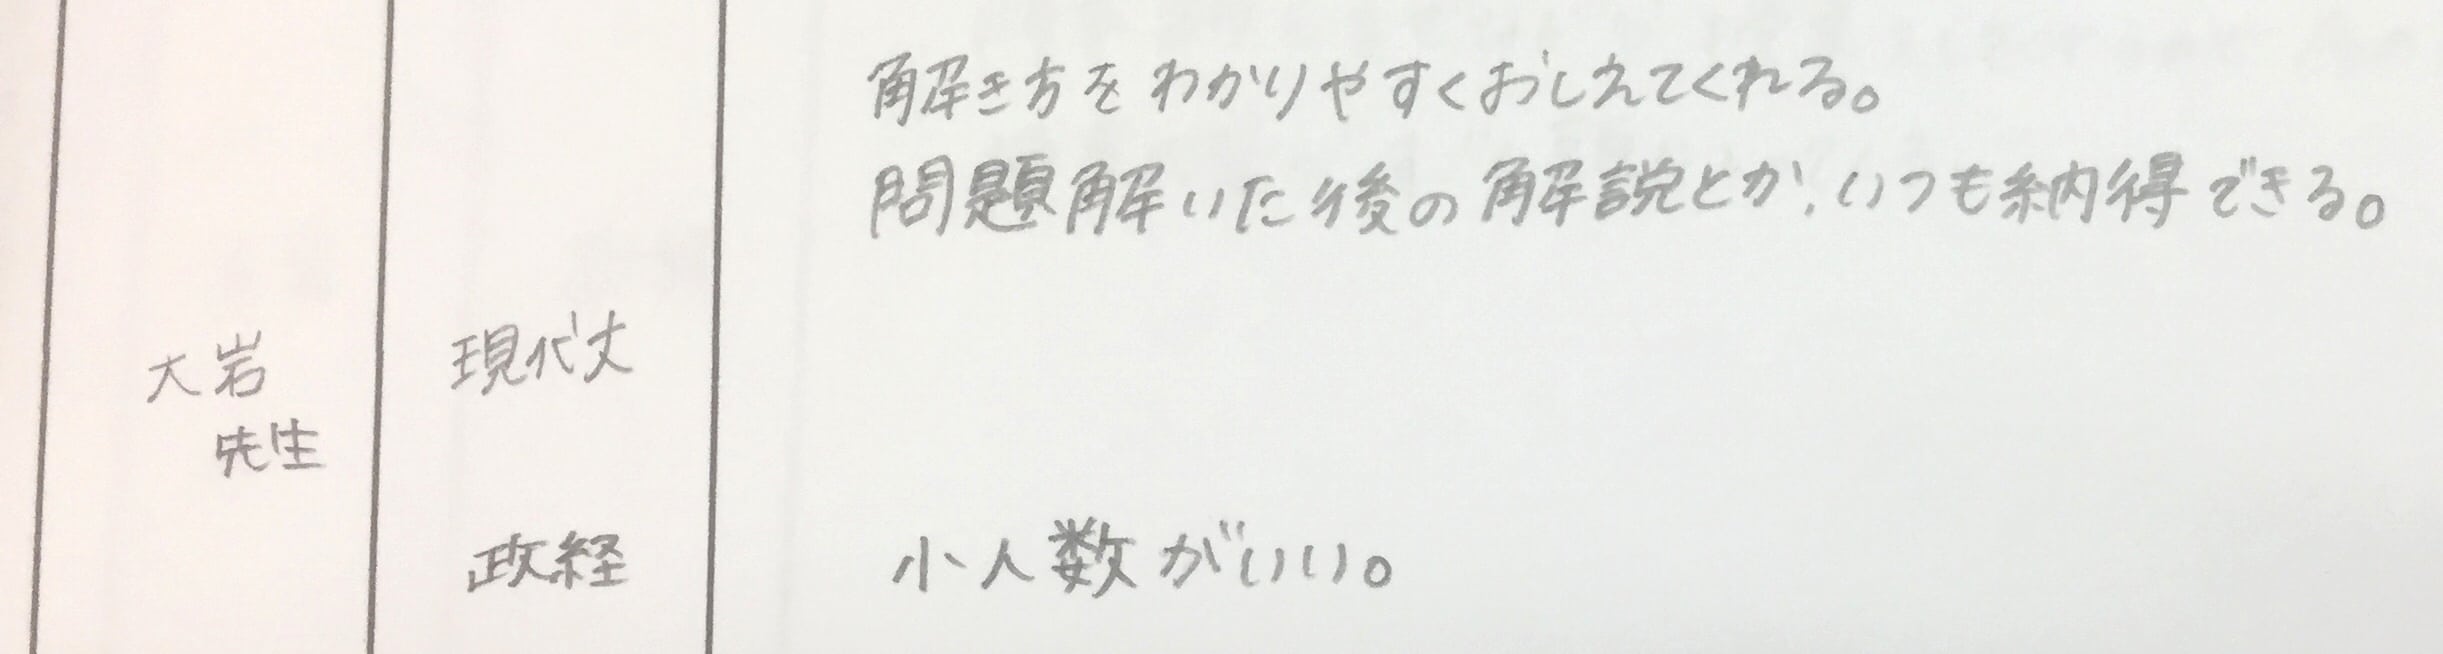 解き方をわかりやすくおしえてくれる。
問題解いた後の解説とか、いつも納得できる。
大岩
先生
現代文
政経
小人数がいい。